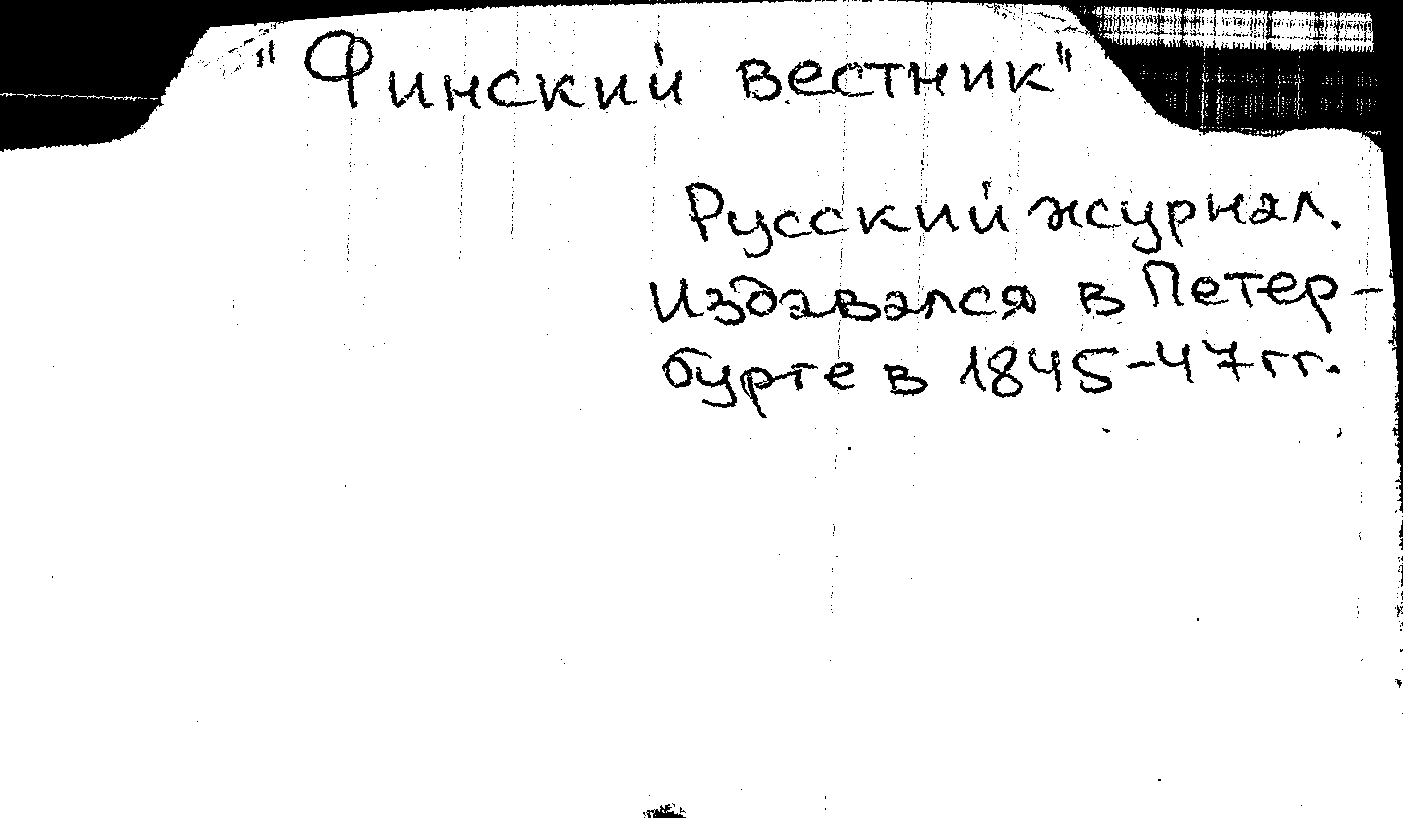 "Финский вестник"
Русский журнал.
Издавался в Петер-
бурге в 1845-47 гг.